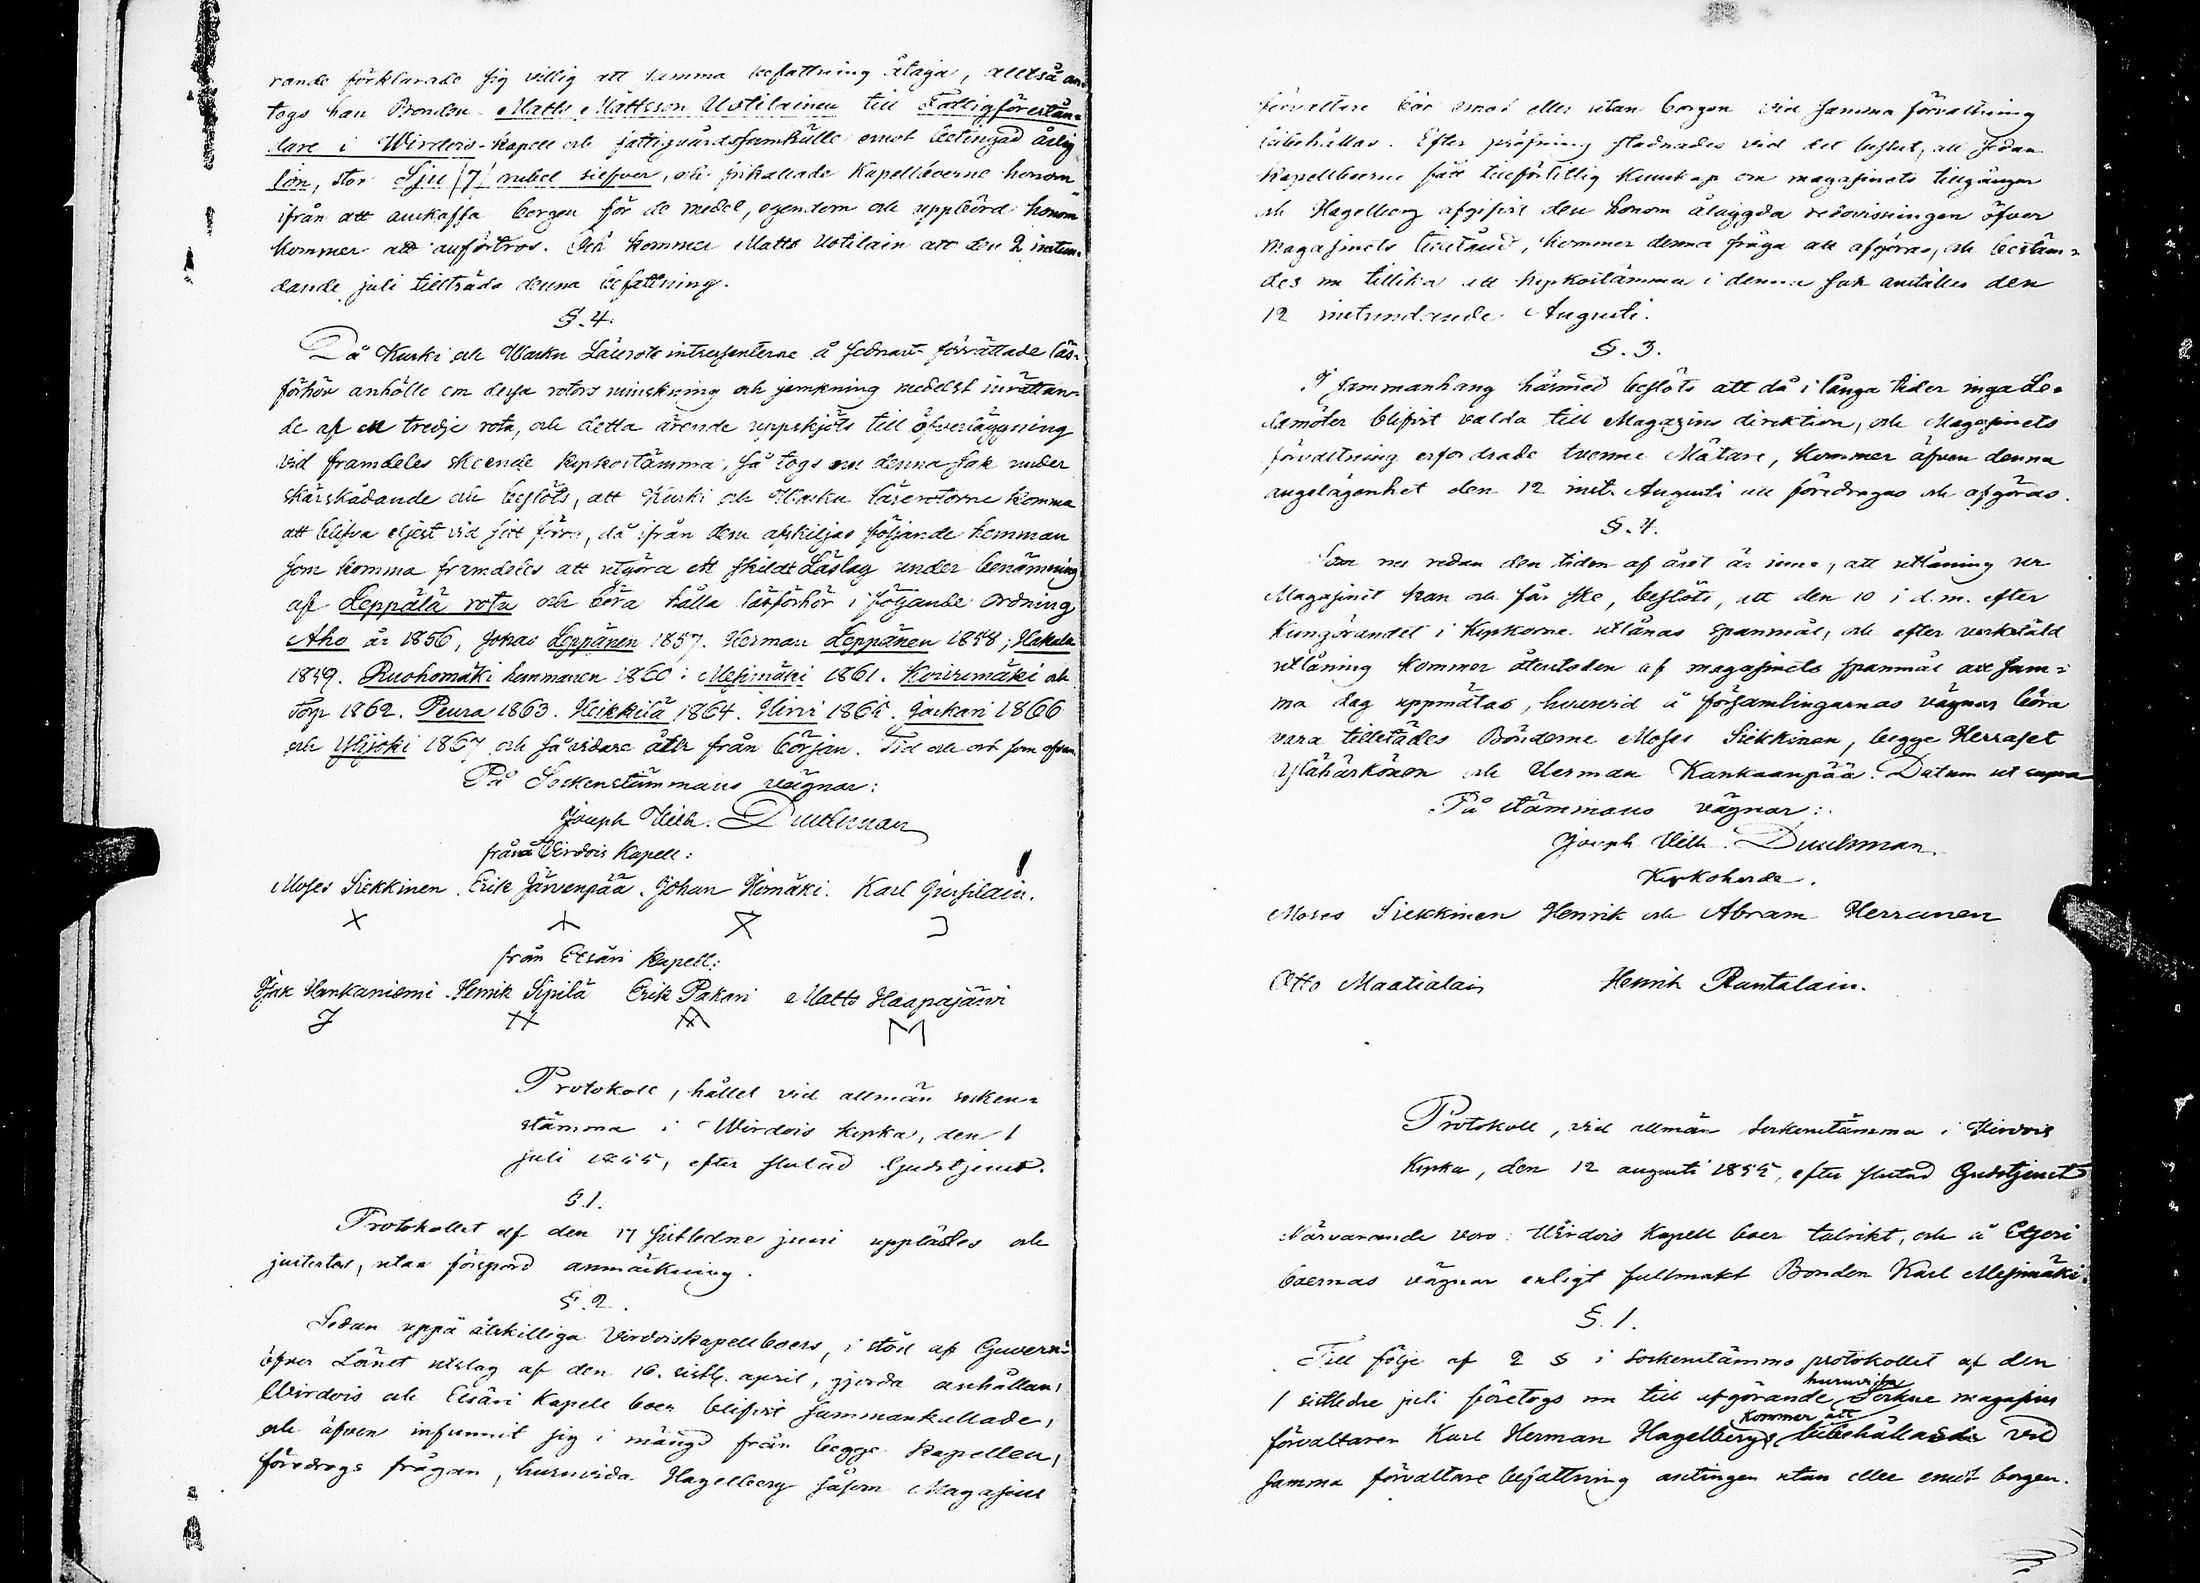 rande förklarade sig villig att samma befattning åtaga, alltså an-
togs han Bonden Matts Mattsson Uotilainen till Fattigförestån-
dare i Wirdois Kapell och fattigvårdssamhälle emot betingad årlig
lön, stor Sju /7/ rubel silfver, och frikallade Kapellboerne honom
ifrån att anskaffa borgen för de medel, egendom och uppbörd honom
kommer att anförtros. Och kommer Matts Uotilain att den 2 instun-
dande juli tillträda denna befattning.
§. 4.
Då Kurki och Wasku Läserote intressenterne å sednast förrättade läs-
förhör anhölle om dessa roters minskning och jemkning medelst inrättan-
de af en tredje rota, och detta ärende uppskjöts till öfverläggning
vid framdeles skeende kyrkostämma, så togs nu denna sak under
skärskådande och beslöts, att Kurki och Wasku läserotorne komma
att blifva eljest vid sitt förra, då ifrån dem afskiljas följande hemman
som komma framdeles att utgöra ett skildt Läslag under benämning
af Leppälä rota och böra hålla läsförhör i följande ordning
Aho år 1856, Jonas Leppänen 1857. Herman Leppänen 1858; Hakala
1859. Ruohomäki hemmanen 1860: Mesimäki 1861. Koivumäki och
Torp 1862. Peura 1863. Heikkilä 1864. Hirvi 1865. Jackari 1866
och Ylijoki 1867 och så vidare åter från början. Tid och ort som ofvan
På Sockenstämmans vägnar:
Joseph Wilh. Duchman
från Virdois Kapell:
Moses Siekkinen. Erik Järvenpää. Johan Homäki. Karl
från Etsäri Kapell:
Isak Hankaniemi. Henrik Sipilä Erik Pakari Matts Haapajärvi
Protokoll, hållet vid allmän socken-
stämma i Wirdois kyrka, den 1
juli 1855, efter slutad Gudstjenst.
§ 1.
Protokollet af den 17 sistledne juni upplästes och
justerades, utan förspord anmärkning.
§. 2.
Sedan uppå åtskilliga Virdois kapellboers, i stöd af Guvern:s
öfver Länet utslag af den 16. sistl. april, gjorda anhållan,
Wirdois och Etsäri Kapell boer blifvit sammankallade,
och äfven infunnit sig i mängd från begge Kapellen,
föredrogs frågan, huruvida Hagelberg såsom Magasins
förvaltare bör emot eller utan borgen vid samma förvaltning
bibehållas. Efter pröfning stadnades vid det beslut, att sedan
Kapellboerne fått tillförlitlig kunskap om magasinets tillgångar
och Hagelberg afgifvit den honom åliggda redovisningen öfver
magasinets tillstånd, kommer denna fråga att afgöras, och bestäm-
des nu tillika att kyrkostämma i denna sak anställes den
12 instundande Augusti.
§. 3.
I sammanhang härmed beslöts att då i långa tider inga Le-
damöter blifvit valda till Magazins direktion, och Magasinets
förvaltning erfordrade tvenne Mätare, kommer äfven denna
angelägenhet den 12 inst. Augusti att föredragas och afgöras.
§. 4.
Som nu redan den tiden af året är inne, att utlåning ur
Magasinet kan och får ske, beslöts, att den 10 i d. m. efter
kungörandet i kyrkorne utlånas spanmål, och efter verkstäld
utlåning kommer återstoden af magasinets spanmål att sam-
ma dag uppmätas, hvarvid å församlingarnas vägnar böra
vara tillstädes Bönderne Moses Siekkinen, begge Herraset
Ylähärkönen och Herman Kankaanpää. Datum ut supra
På stämmans vägnar:
Joseph Wilh. Duchman
Kyrkoherde.
Moses Siekkinen Henrik och Abram Herranen
Otto Maatialain Henrik Rantalain.
Protokoll, vid allmän Sockenstämma i Virdois
Kyrka, den 12 augusti 1855, efter slutad Gudstjenst
Närvarande voro: Wirdois Kapell boer talrikt, och å Etseri
boernas vägnar enligt fullmakt Bonden Karl Mesimäki.
§. 1.
Till följe af 2 § i Sockenstämmo protokollet af den
1 sistledne juli företogs nu till afgörande huruvida Sockne magasins
förvaltaren Karl Herman Hagelberg kommer att bibehållas vid
samma förvaltare befattning antingen utan eller emot borgen.